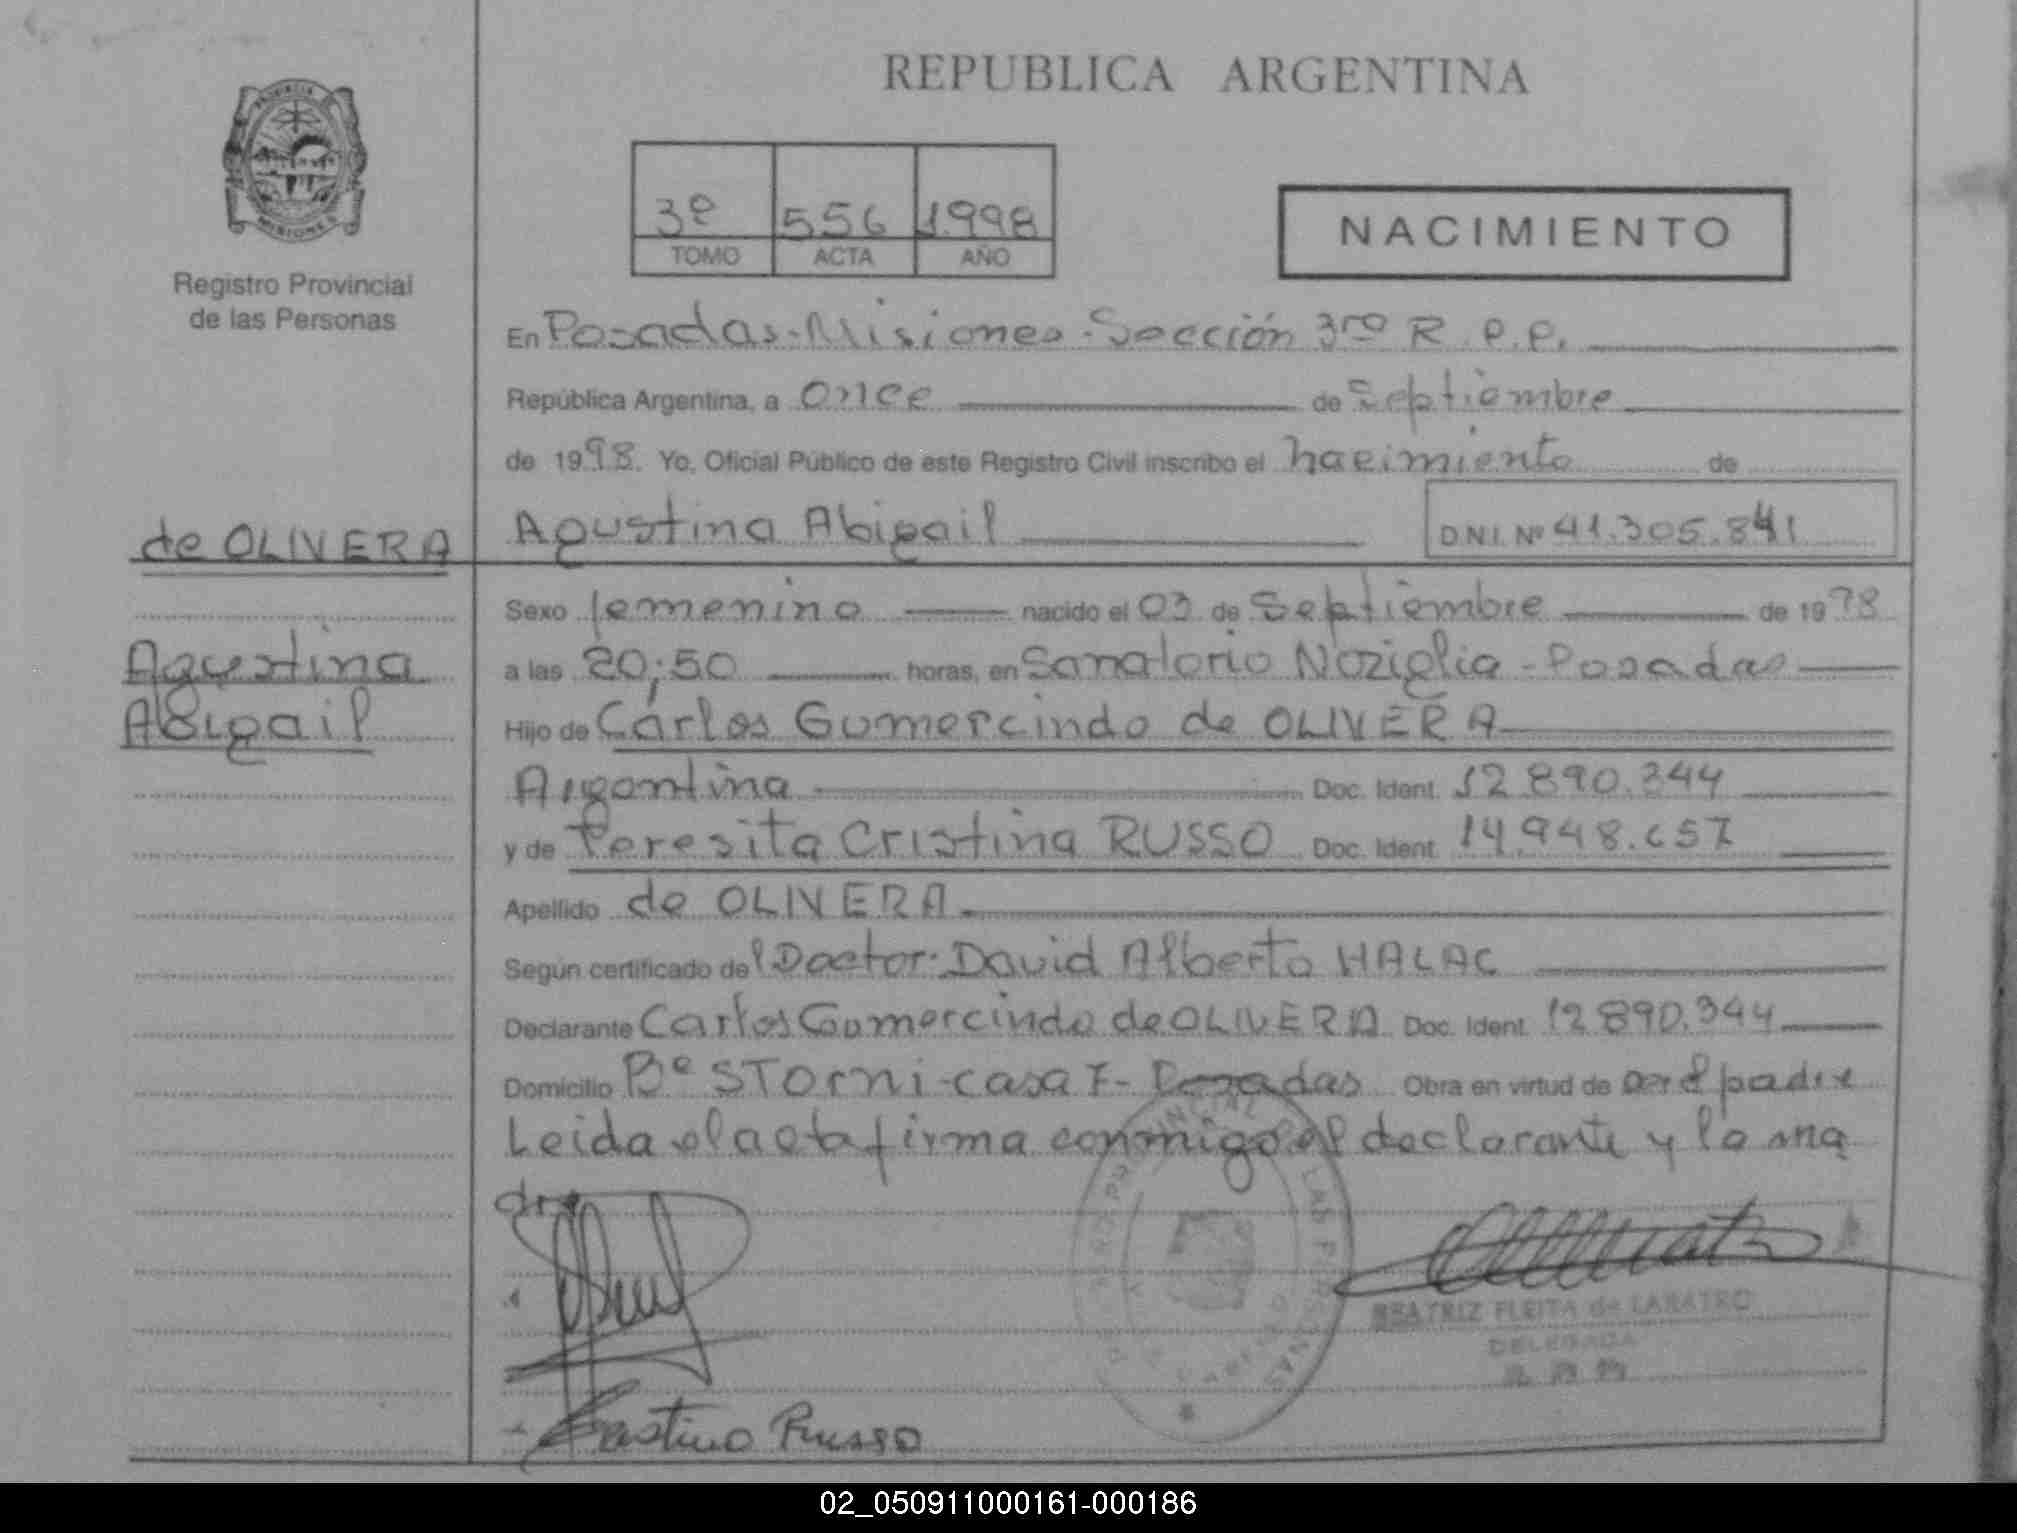 REPUBLICA ARGENTINA
PROVINCIA
MISIONES
Registro Provincial
de las Personas
3º 556 1.998
TOMO ACTA AÑO
NACIMIENTO
En Posadas-Misiones-Sección 3ro R.P.P.
República Argentina, a Once de Septiembre
de 1998. Yo, Oficial Público de este Registro Civil inscribo el nacimiento de
de OLIVERA
Agustina Abigail
D.N.I. Nº 41.305.841
Sexo femenino nacido el 03 de Septiembre de 1998
Agustina
Abigail
a las 20;50 horas, en Sanatorio Noziglia - Posadas
Hijo de Carlos Gumercindo de OLIVERA
Argentina Doc. Ident. 12.890.344
y de Teresita Cristina RUSSO Doc. Ident. 14.948.657
Apellido de OLIVERA
Según certificado del Doctor. David Alberto HALAC
Declarante Carlos Gumercindo de OLIVERA Doc. Ident. 12.890.344
Domicilio Bº STOrni-casa 7- Posadas Obra en virtud de ser el padre
Leida el acta firma conmigo el declarante y la ma
dre
BEATRIZ FLEITA de LABATRO
DELEGADA
Russo
02_050911000161-000186